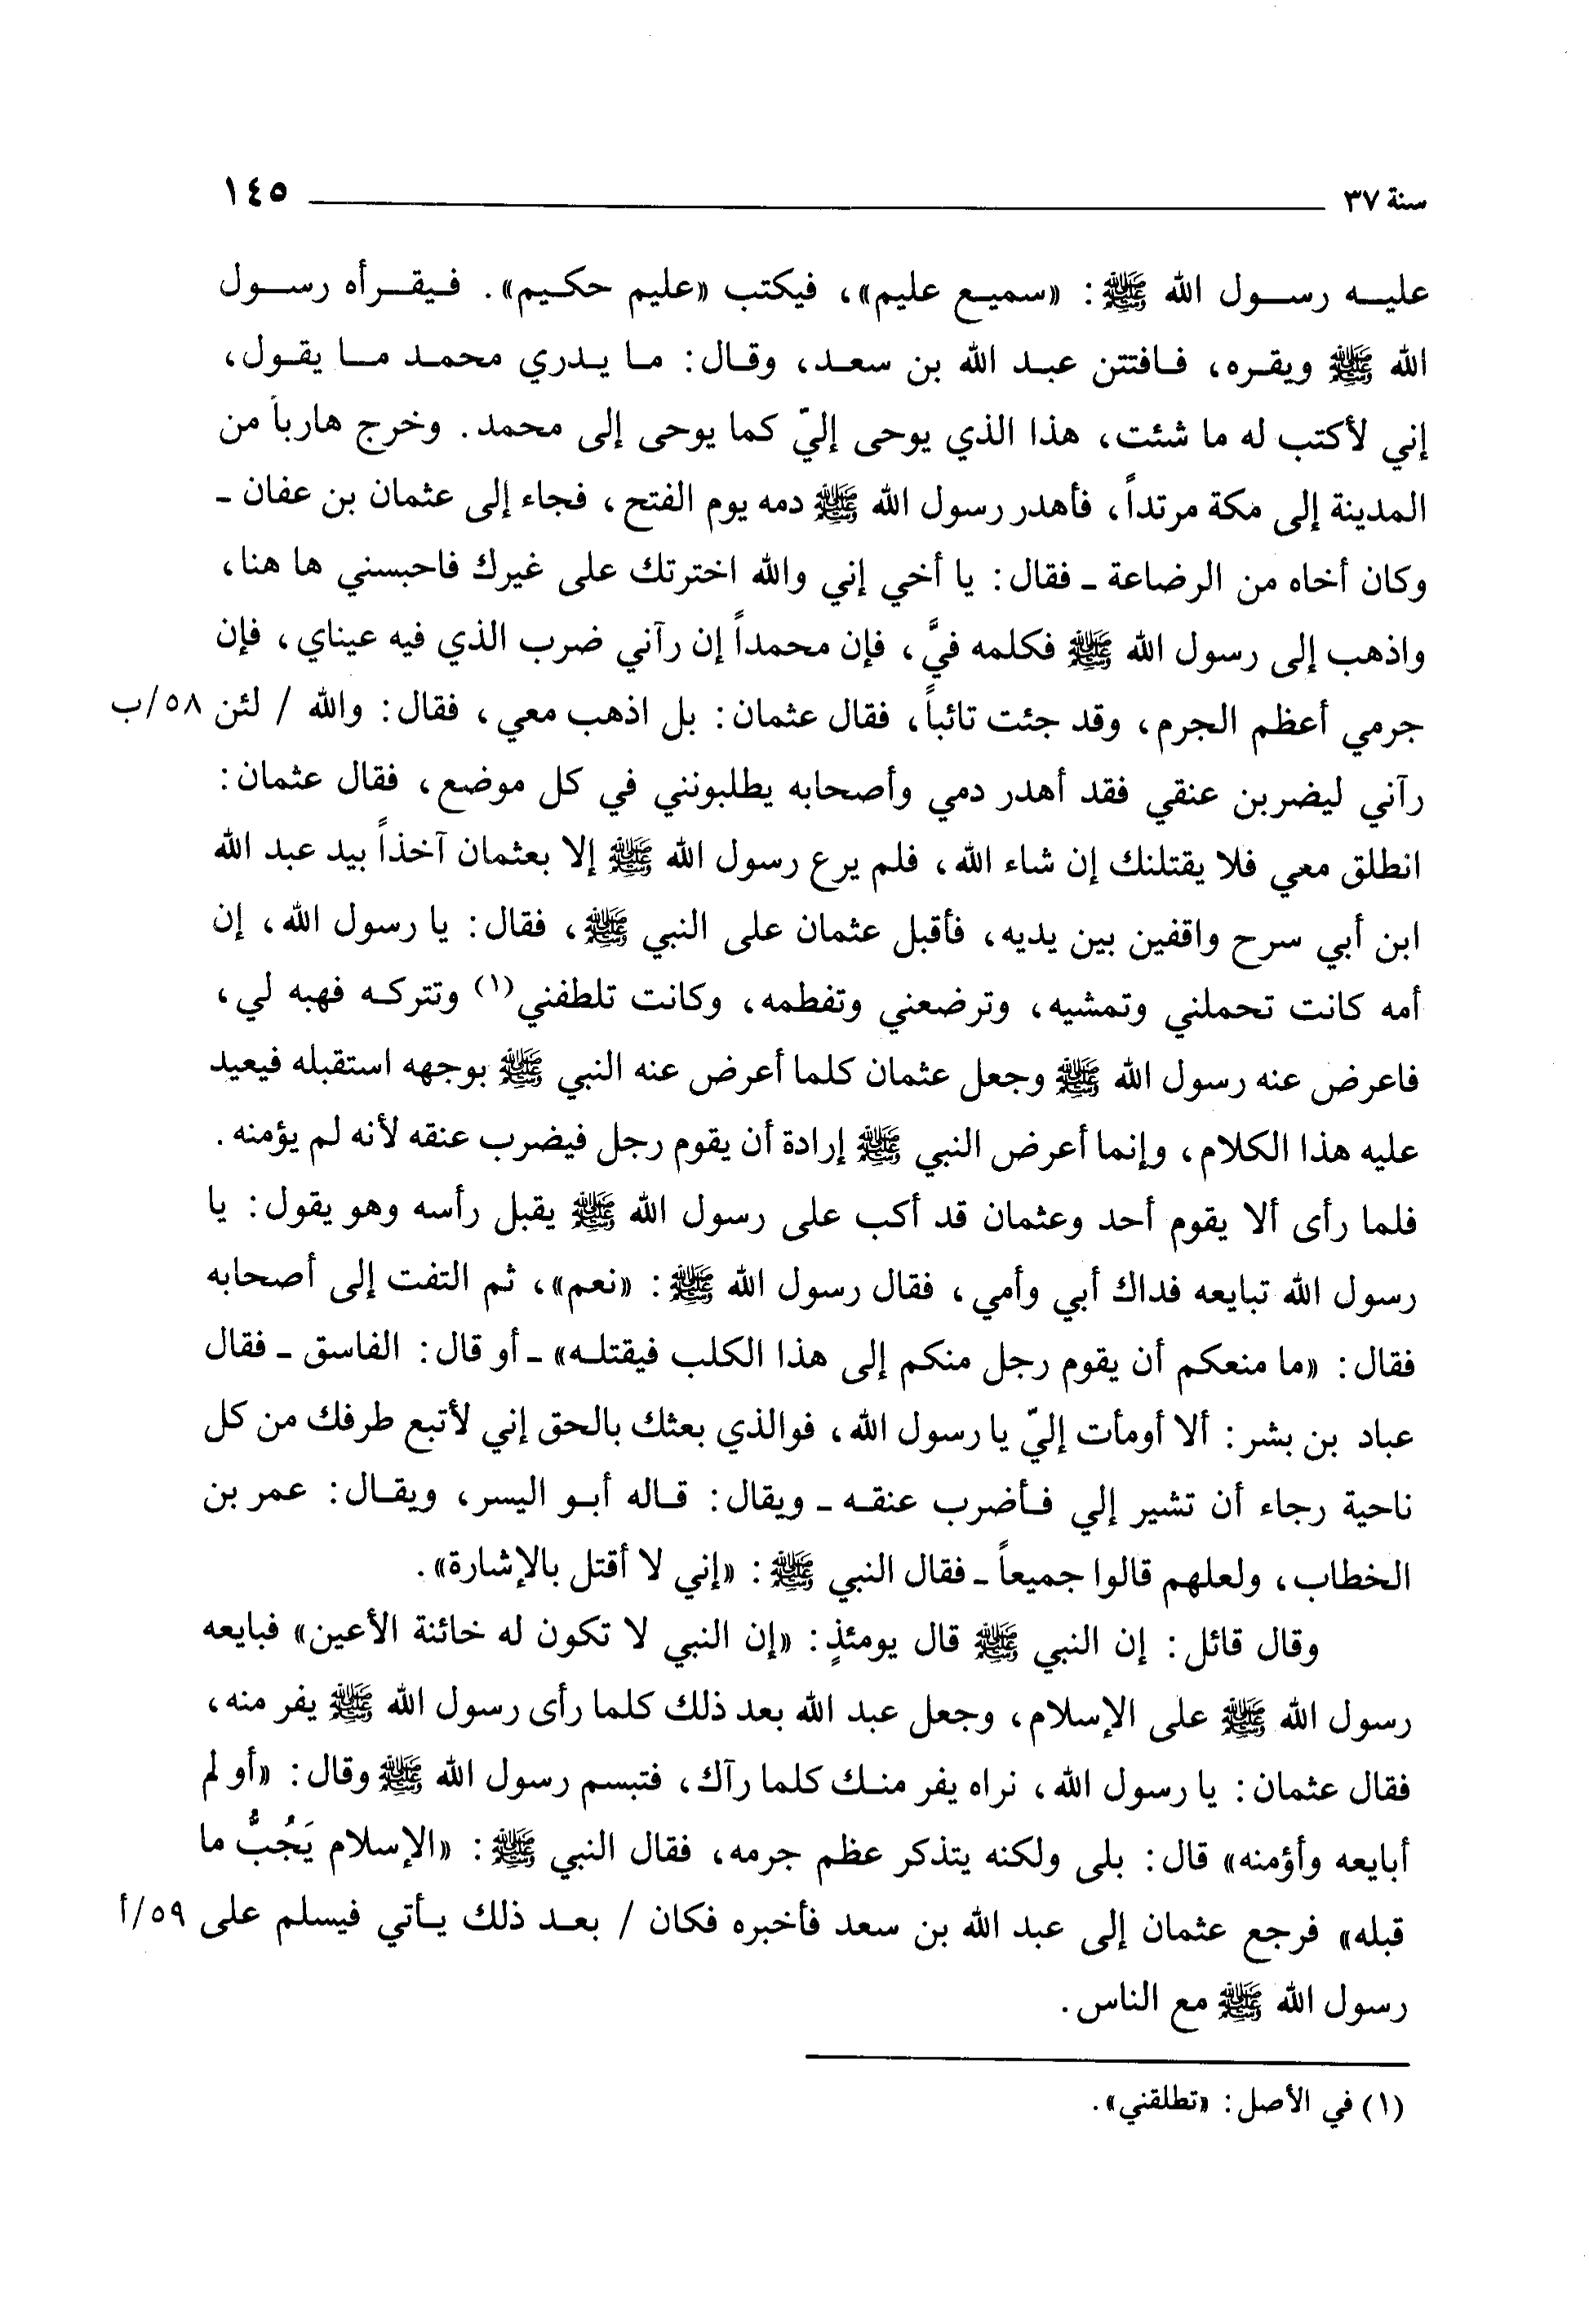 سنة ٣٧ ١٤٥
عليه رسول الله ﷺ: «سميع عليم»، فيكتب «عليم حكيم». فيقرأه رسول
الله ﷺ ويقره، فافتتن عبد الله بن سعد، وقال: ما يدري محمد ما يقول،
إني لأكتب له ما شئت، هذا الذي يوحى إليّ كما يوحى إلى محمد. وخرج هارباً من
المدينة إلى مكة مرتداً، فأهدر رسول الله ﷺ دمه يوم الفتح، فجاء إلى عثمان بن عفان -
وكان أخاه من الرضاعة - فقال: يا أخي إني والله اخترتك على غيرك فاحبسني ها هنا،
واذهب إلى رسول الله ﷺ فكلمه فيَّ، فإن محمداً إن رآني ضرب الذي فيه عيناي، فإن
جرمي أعظم الجرم، وقد جئت تائباً، فقال عثمان: بل اذهب معي، فقال: والله / لئن ٥٨/ب
رآني ليضربن عنقي فقد أهدر دمي وأصحابه يطلبونني في كل موضع، فقال عثمان:
انطلق معي فلا يقتلنك إن شاء الله، فلم يرع رسول الله ﷺ إلا بعثمان آخذاً بيد عبد الله
ابن أبي سرح واقفين بين يديه، فأقبل عثمان على النبي ﷺ، فقال: يا رسول الله، إن
أمه كانت تحملني وتمشيه، وترضعني وتفطمه، وكانت تلطفني(١) وتتركه فهبه لي،
فاعرض عنه رسول الله ﷺ وجعل عثمان كلما أعرض عنه النبي ﷺ بوجهه استقبله فيعيد
عليه هذا الكلام، وإنما أعرض النبي ﷺ إرادة أن يقوم رجل فيضرب عنقه لأنه لم يؤمنه.
فلما رأى ألا يقوم أحد وعثمان قد أكب على رسول الله ﷺ يقبل رأسه وهو يقول: يا
رسول الله تبايعه فداك أبي وأمي، فقال رسول الله ﷺ: «نعم»، ثم التفت إلى أصحابه
فقال: «ما منعكم أن يقوم رجل منكم إلى هذا الكلب فيقتله» - أو قال: الفاسق - فقال
عباد بن بشر: ألا أومأت إليّ يا رسول الله، فوالذي بعثك بالحق إني لأتبع طرفك من كل
ناحية رجاء أن تشير إلي فأضرب عنقه - ويقال: قاله أبو اليسر، ويقال: عمر بن
الخطاب، ولعلهم قالوا جميعاً - فقال النبي ﷺ: «إني لا أقتل بالإشارة».
وقال قائل: إن النبي ﷺ قال يومئذٍ: «إن النبي لا تكون له خائنة الأعين» فبايعه
رسول الله ﷺ على الإسلام، وجعل عبد الله بعد ذلك كلما رأى رسول الله ﷺ يفر منه،
فقال عثمان: يا رسول الله، نراه يفر منك كلما رآك، فتبسم رسول الله ﷺ وقال: «أو لم
أبايعه وأؤمنه» قال: بلى ولكنه يتذكر عظم جرمه، فقال النبي ﷺ: «الإسلام يَجُبُّ ما
قبله» فرجع عثمان إلى عبد الله بن سعد فأخبره فكان / بعد ذلك يأتي فيسلم على ٥٩/أ
رسول الله ﷺ مع الناس.
(١) في الأصل: «تطلقني».